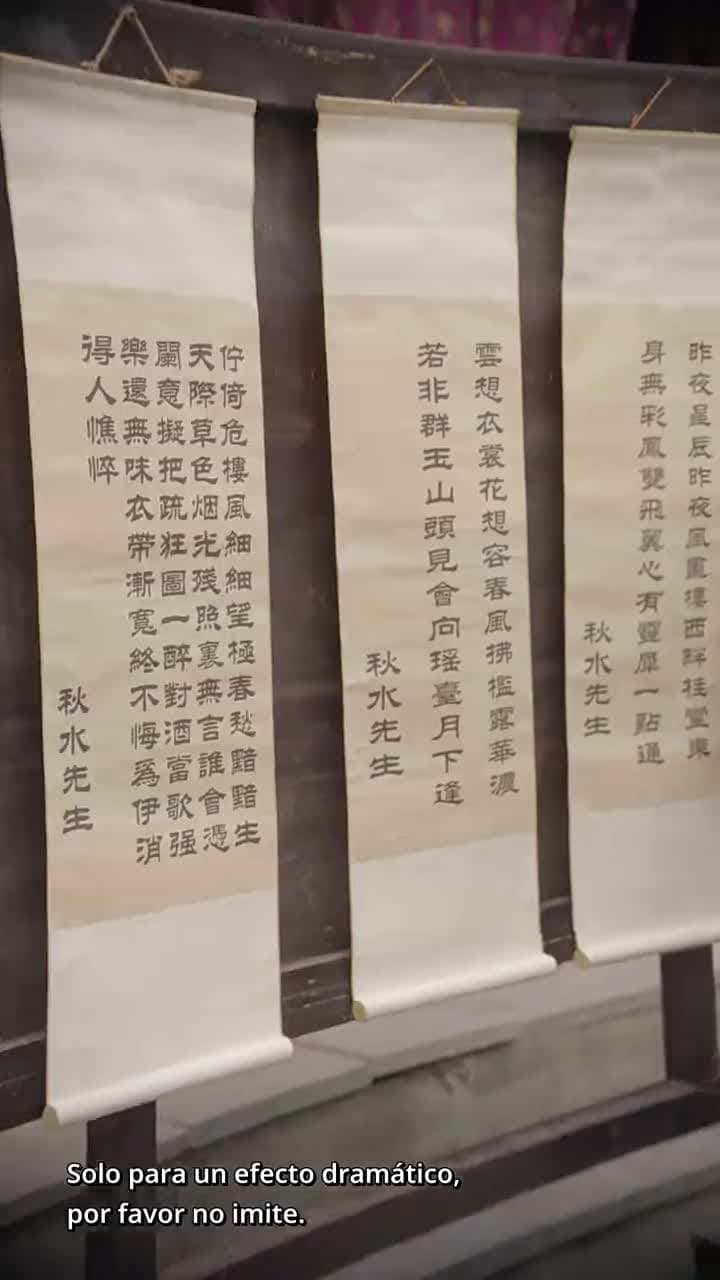 昨夜星辰昨夜風畫樓西畔桂堂東
身無彩鳳雙飛翼心有靈犀一點通
秋水先生
雲想衣裳花想容春風拂檻露華濃
若非群玉山頭見會向瑶臺月下逢
秋水先生
佇倚危樓風細細望極春愁黯黯生
天際草色烟光残照裏無言誰會憑
闌意擬把疏狂圖一醉對酒當歌强
樂還無味衣帶漸寬終不悔爲伊消
得人憔悴
秋水先生
Solo para un efecto dramático,
por favor no imite.